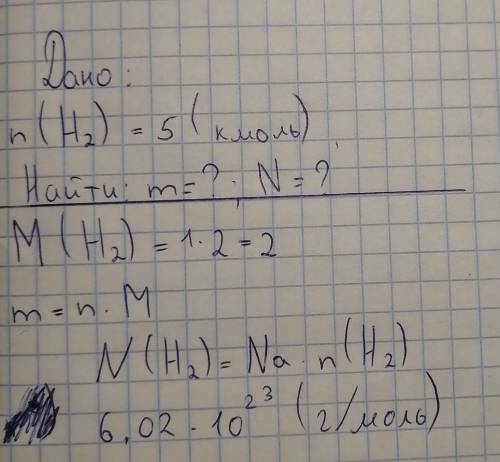 Дано:
n(H₂) = 5 (кмоль)
Найти: m = ?; N = ?
M(H₂) = 1·2 = 2
m = n·M
N(H₂) = Na·n(H₂)
6,02·10²³ (г/моль)